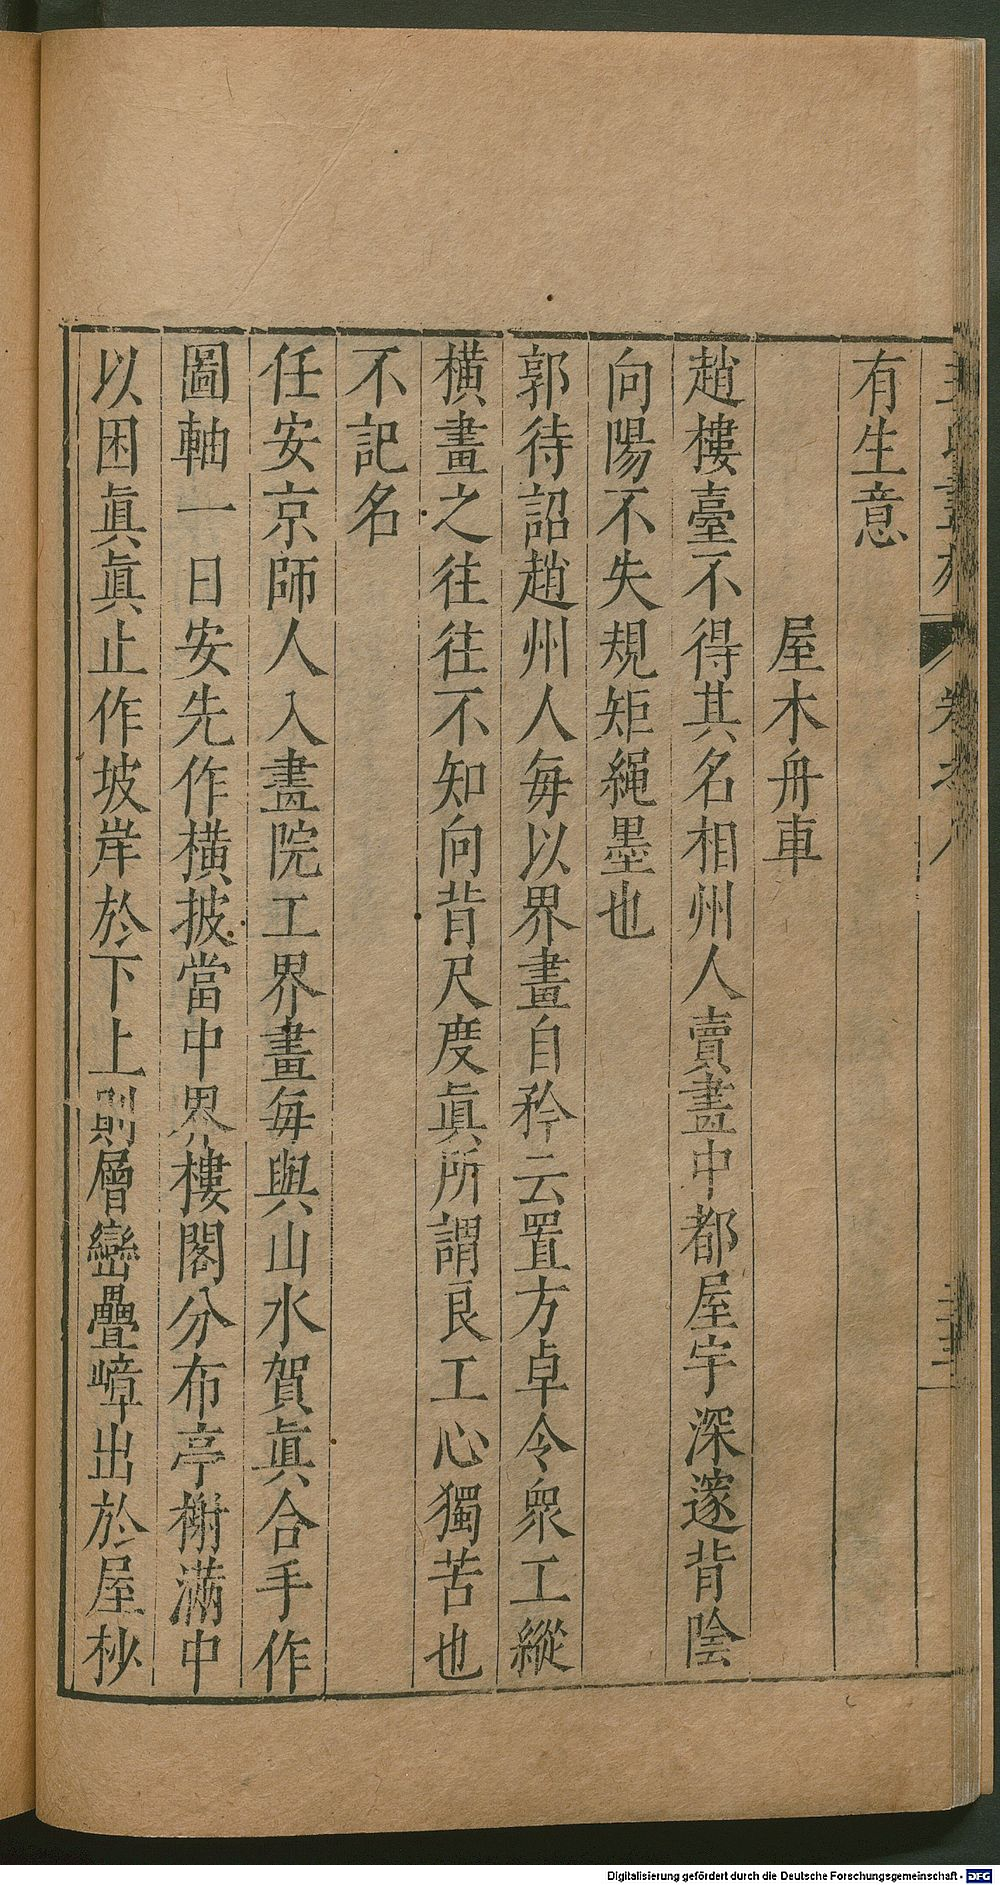 有生意
屋木舟車
趙樓臺不得其名相州人賣畫中都屋宇深邃背陰
向陽不失規矩繩墨也
郭待詔趙州人每以界畫自矜云置方卓令衆工縱
橫畫之往往不知向背尺度眞所謂良工心獨苦也
不記名
任安京師人入畫院工界畫每與山水賀眞合手作
圖軸一日安先作橫披當中界樓閣分布亭榭滿中
以困眞眞止作坡岸於下上則層巒疊嶂出於屋杪
Digitalisierung gefördert durch die Deutsche Forschungsgemeinschaft - DFG